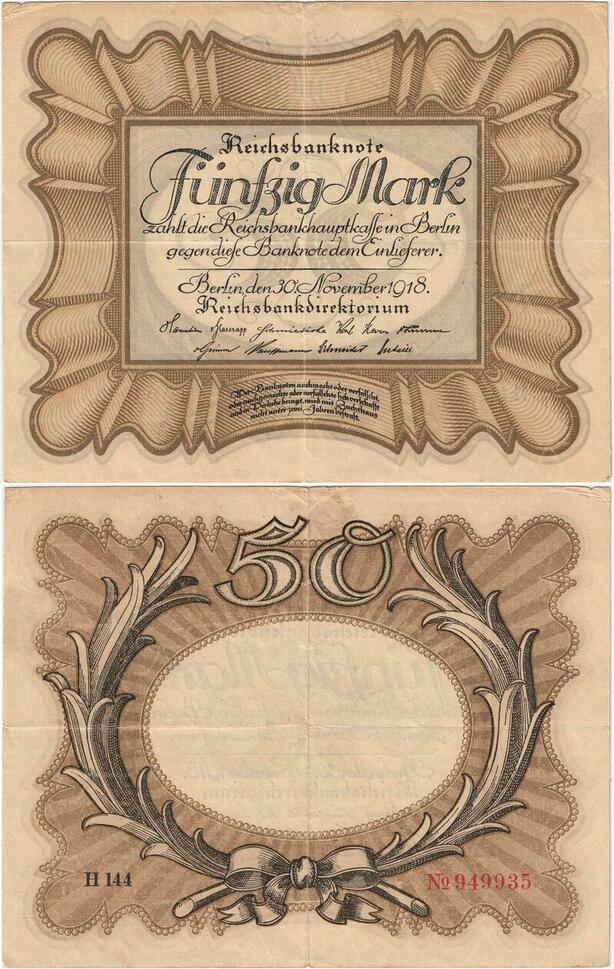 Reichsbanknote
Fünfzig Mark
zahlt die Reichsbankhauptkasse in Berlin
gegen diese Banknote dem Einlieferer.
Berlin, den 30. November 1918.
Reichsbankdirektorium
Havenstein v Glasenapp Schmiedicke Korn Maron
v Grimm Kauffmann Schneider Budczies
Wer Banknoten nachmacht oder verfälscht,
oder nachgemachte oder verfälschte sich verschafft
und in Verkehr bringt, wird mit Zuchthaus
nicht unter zwei Jahren bestraft.
50
H 144
No 949935